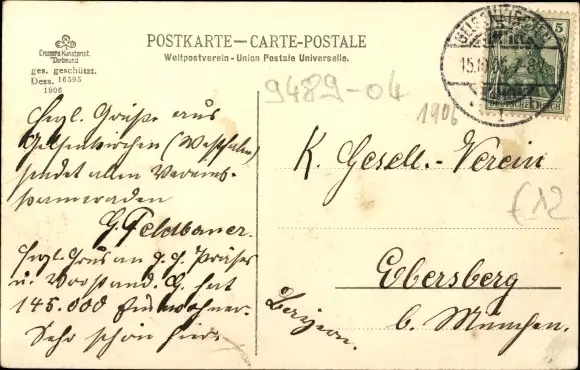 Cramers Kunstanst.
Dortmund
ges. geschützt.
Dess. 16595
1906
POSTKARTE — CARTE-POSTALE
Weltpostverein - Union Postale Universelle.
5
DEUTSCHES REICH
15.10.06. 7-8N
9489-04
1906
Herzl. Grüße aus
Gelsenkirchen (Westfalen)
sendet allen Vereins-
kameraden
G. Feldbauer.
Herzl. Gruß an H. H. Präses
u. Vorstand. G. hat
145.000 Einwohner.
Sehr schön hier.
K. Gesell.-Verein
€12
Ebersberg
b. München.
Bayern.